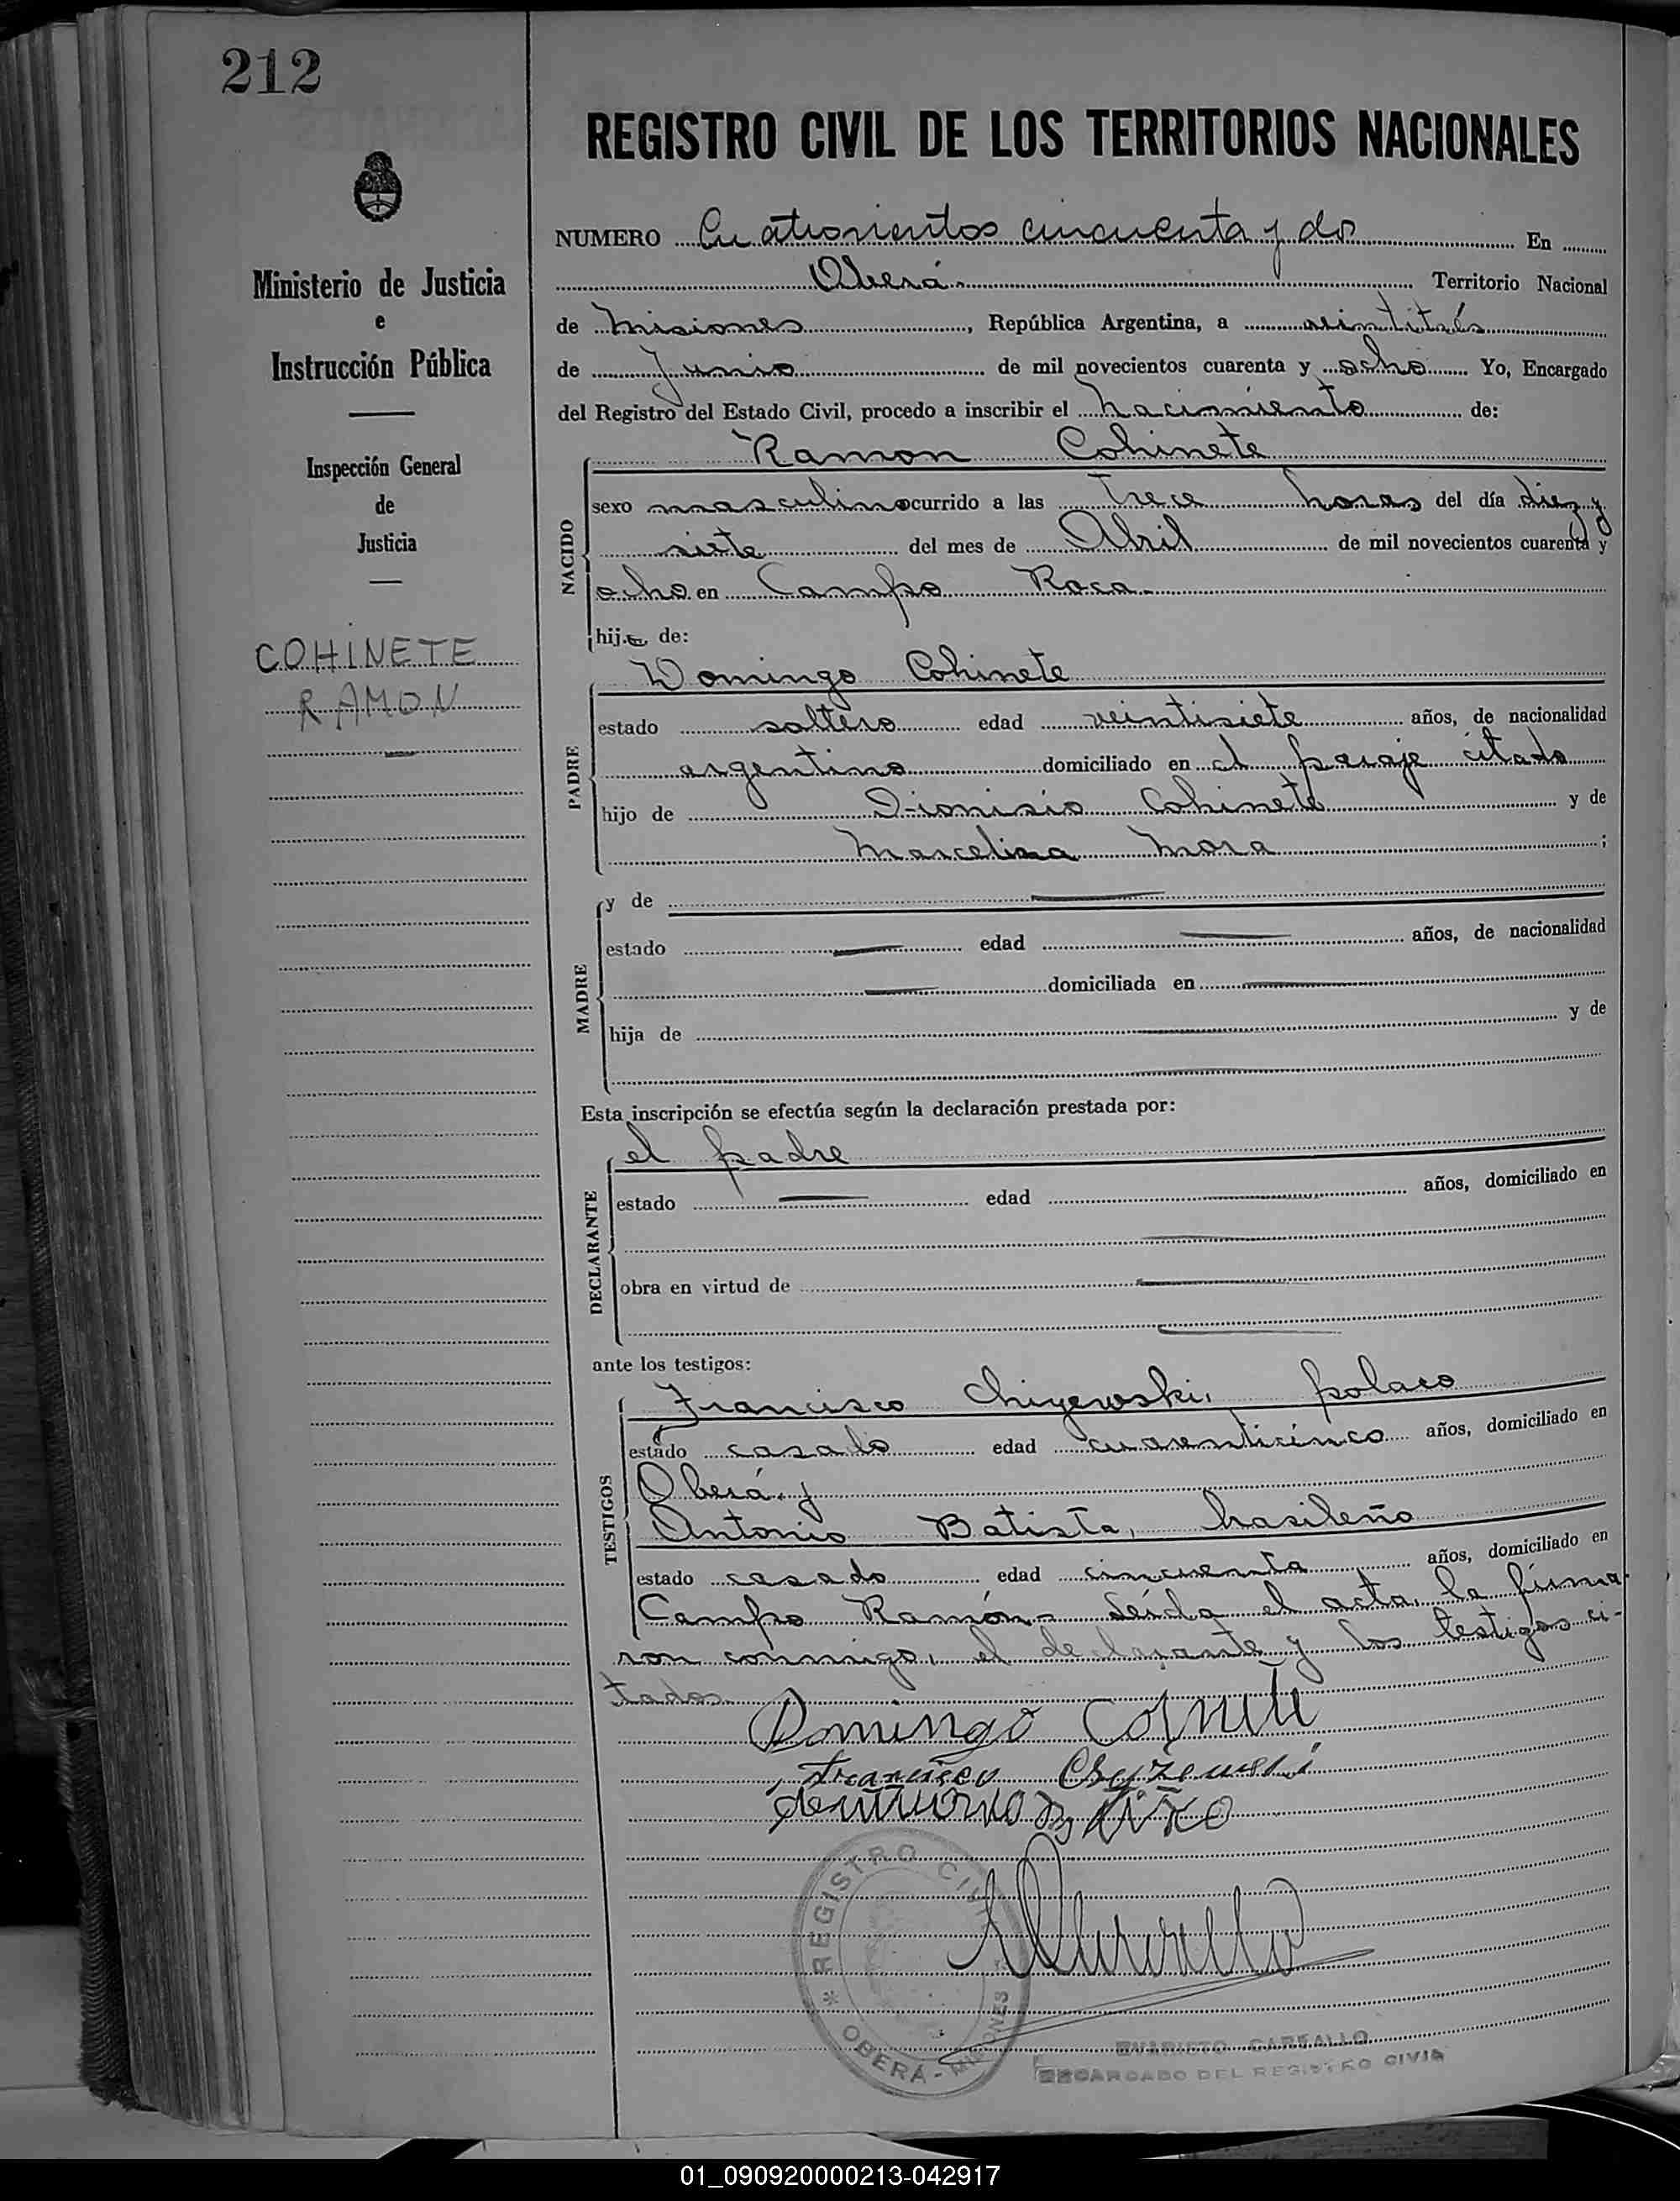 212
REGISTRO CIVIL DE LOS TERRITORIOS NACIONALES
Ministerio de Justicia
e
Instrucción Pública
Inspección General
de
Justicia
COHINETE
RAMON
NUMERO Cuatrocientos cincuenta y dos En
Oberá. Territorio Nacional
de Misiones, República Argentina, a veintitrés
de Junio de mil novecientos cuarenta y ocho Yo, Encargado
del Registro del Estado Civil, procedo a inscribir el nacimiento de:
Ramon Cohinete
NACIDO
sexo masculino ocurrido a las trece horas del día diez y
siete del mes de Abril de mil novecientos cuarenta y
ocho en Campo Roca.
hijo de:
Domingo Cohinete
PADRE
estado soltero edad veintisiete años, de nacionalidad
argentino domiciliado en el paraje citado
hijo de Dionisio Cohinete y de
Marcelina Mora ;
MADRE
y de
estado edad años, de nacionalidad
domiciliada en
hija de y de
Esta inscripción se efectúa según la declaración prestada por:
el padre
DECLARANTE
estado edad años, domiciliado en
obra en virtud de
ante los testigos:
Francisco Chiyewski, polaco
TESTIGOS
estado casado edad cuarenticinco años, domiciliado en
Oberá y
Antonio Batista, brasileño
estado casado edad cincuenta años, domiciliado en
Campo Ramón.- Leída el acta, la firma
ron conmigo, el declarante y los testigos ci-
tados.
Domingo
Francisco
REGISTRO CIVIL
OBERÁ - MISIONES
EVARISTO CARBALLO
ENCARGADO DEL REGISTRO CIVIL
01_090920000213-042917